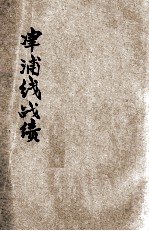 津浦线战绩